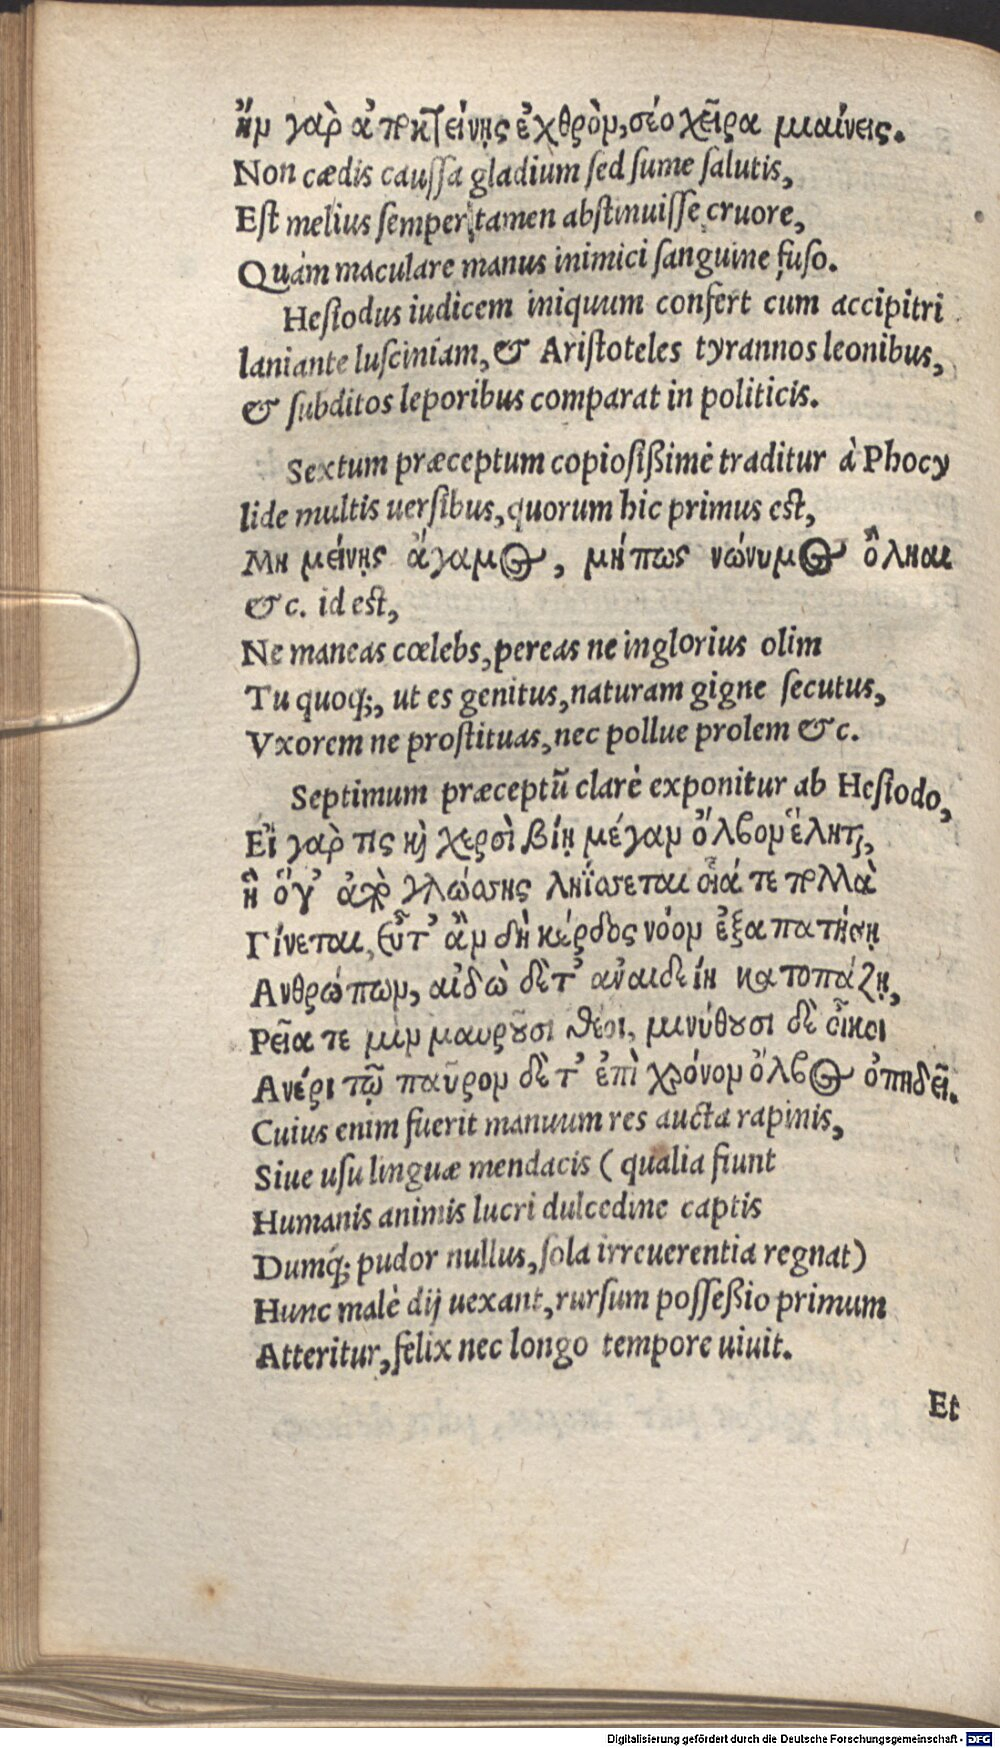 ἤν γὰρ ἀποκτείνῃς ἐχθρὸν, σέο χεῖρα μιαίνεις.
Non cædis caussa gladium sed sume salutis,
Est melius semper tamen abstinuisse cruore,
Quàm maculare manus inimici sanguine fuso.
Hesiodus iudicem iniquum confert cum accipitri
laniante lusciniam, & Aristoteles tyrannos leonibus,
& subditos leporibus comparat in politicis.
Sextum præceptum copiosißimè traditur à Phocy
lide multis uersibus, quorum hic primus est,
Μὴ μείνῃς ἄγαμος, μήπως νώνυμος ὄληαι
&c. id est,
Ne maneas cœlebs, pereas ne inglorius olim
Tu quoq;, ut es genitus, naturam gigne secutus,
Vxorem ne prostituas, nec pollue prolem &c.
Septimum præceptũ clarè exponitur ab Hesiodo,
Εἰ γάρ τις καὶ χερσὶ βίῃ μέγαν ὄλβον ἕληται,
ἢ ὅγ' ἀπὸ γλώσσης ληΐσσεται οἷά τε πολλὰ
Γίνεται, εὖτ' ἂν δὴ κέρδος νόον ἐξαπατήσῃ
Ανθρώπων, αἰδῶ δέ τ' ἀναιδείη κατοπάζῃ,
Ρεῖά τε μιν μαυροῦσι θεοὶ, μινύθουσι δὲ οἶκοι
Ανέρι τῷ παῦρον δέ τ' ἐπὶ χρόνον ὄλβος ὀπηδεῖ.
Cuius enim fuerit manuum res aucta rapinis,
Siue usu linguæ mendacis (qualia fiunt
Humanis animis lucri dulcedine captis
Dumq́; pudor nullus, sola irreuerentia regnat)
Hunc malè dij uexant, rursum posseßio primum
Atteritur, felix nec longo tempore uiuit.
Et
Digitalisierung gefördert durch die Deutsche Forschungsgemeinschaft - DFG